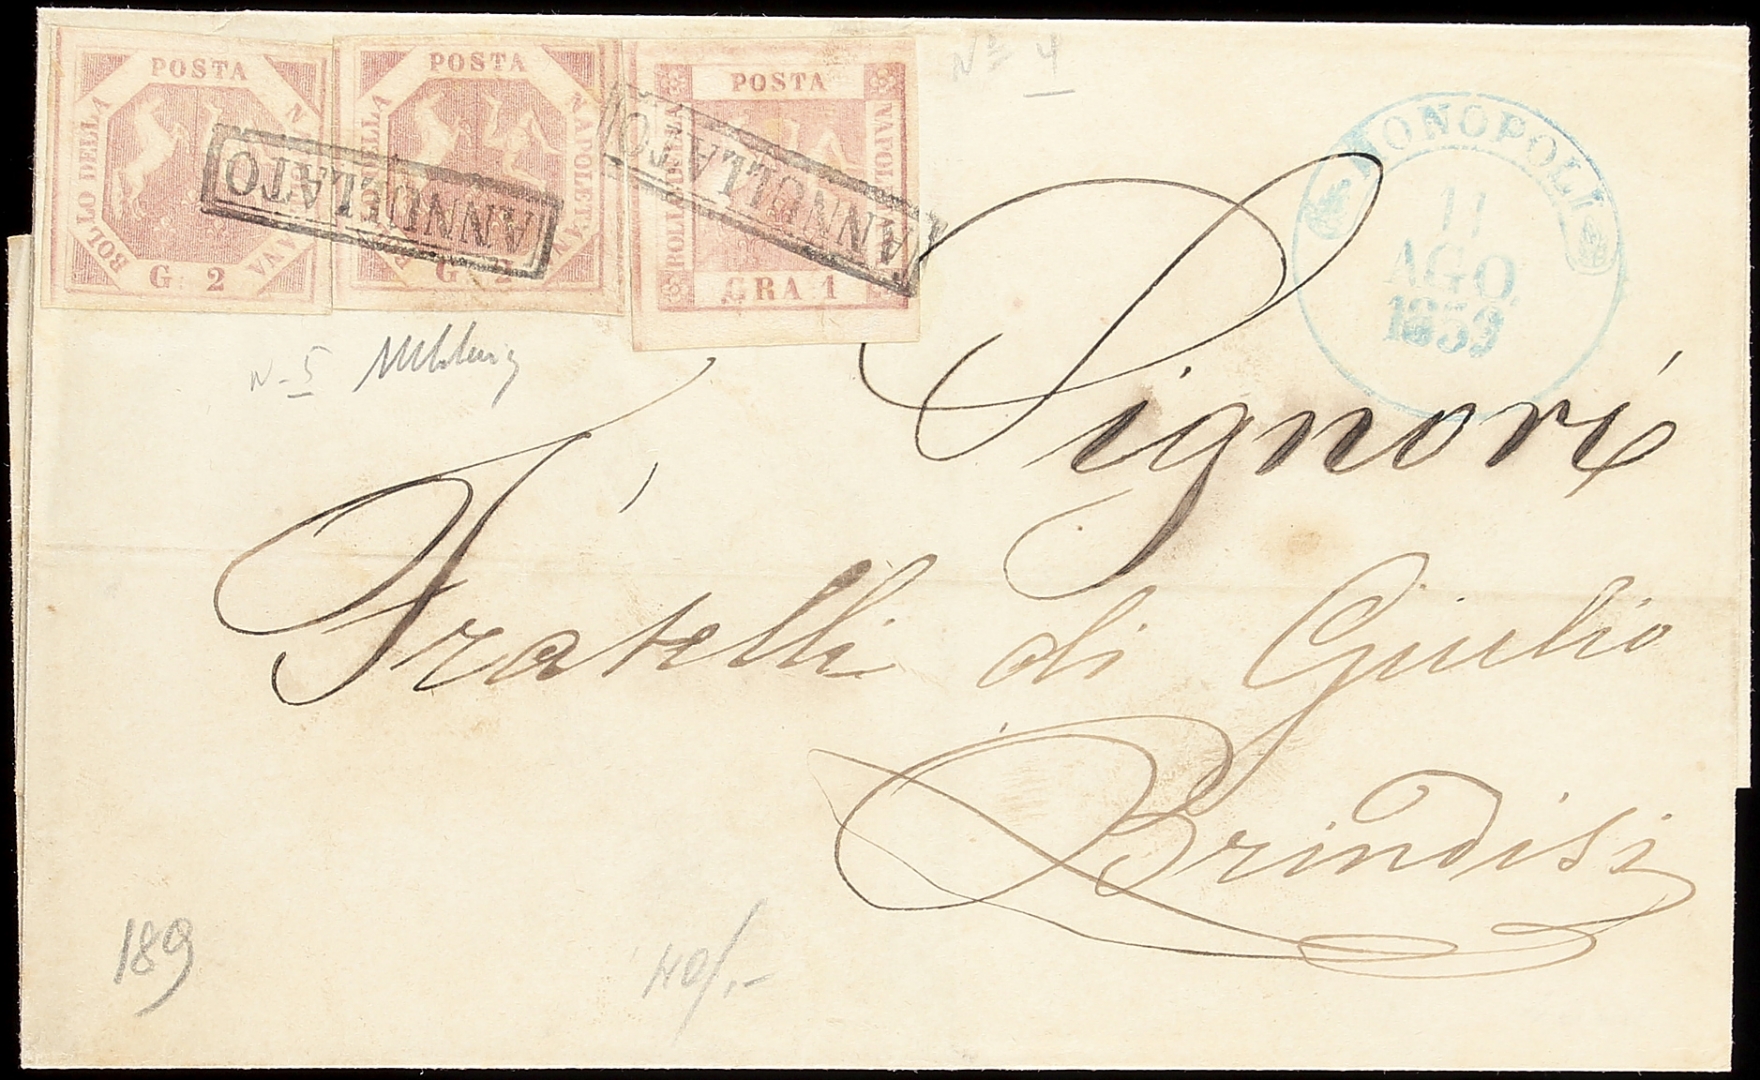 POSTA
BOLLO DELLA
NAPOLETANA
G. 2
POSTA
BOLLO DELLA
NAPOLETANA
G. 2
POSTA
BOLLO DELLA
NAPOLETANA
GRA 1
ANNULLATO
ANNULLATO
Nº 4
MONOPOLI
11
AGO.
1859
N-5
Signori
Fratelli di Giulio
Brindisi
189